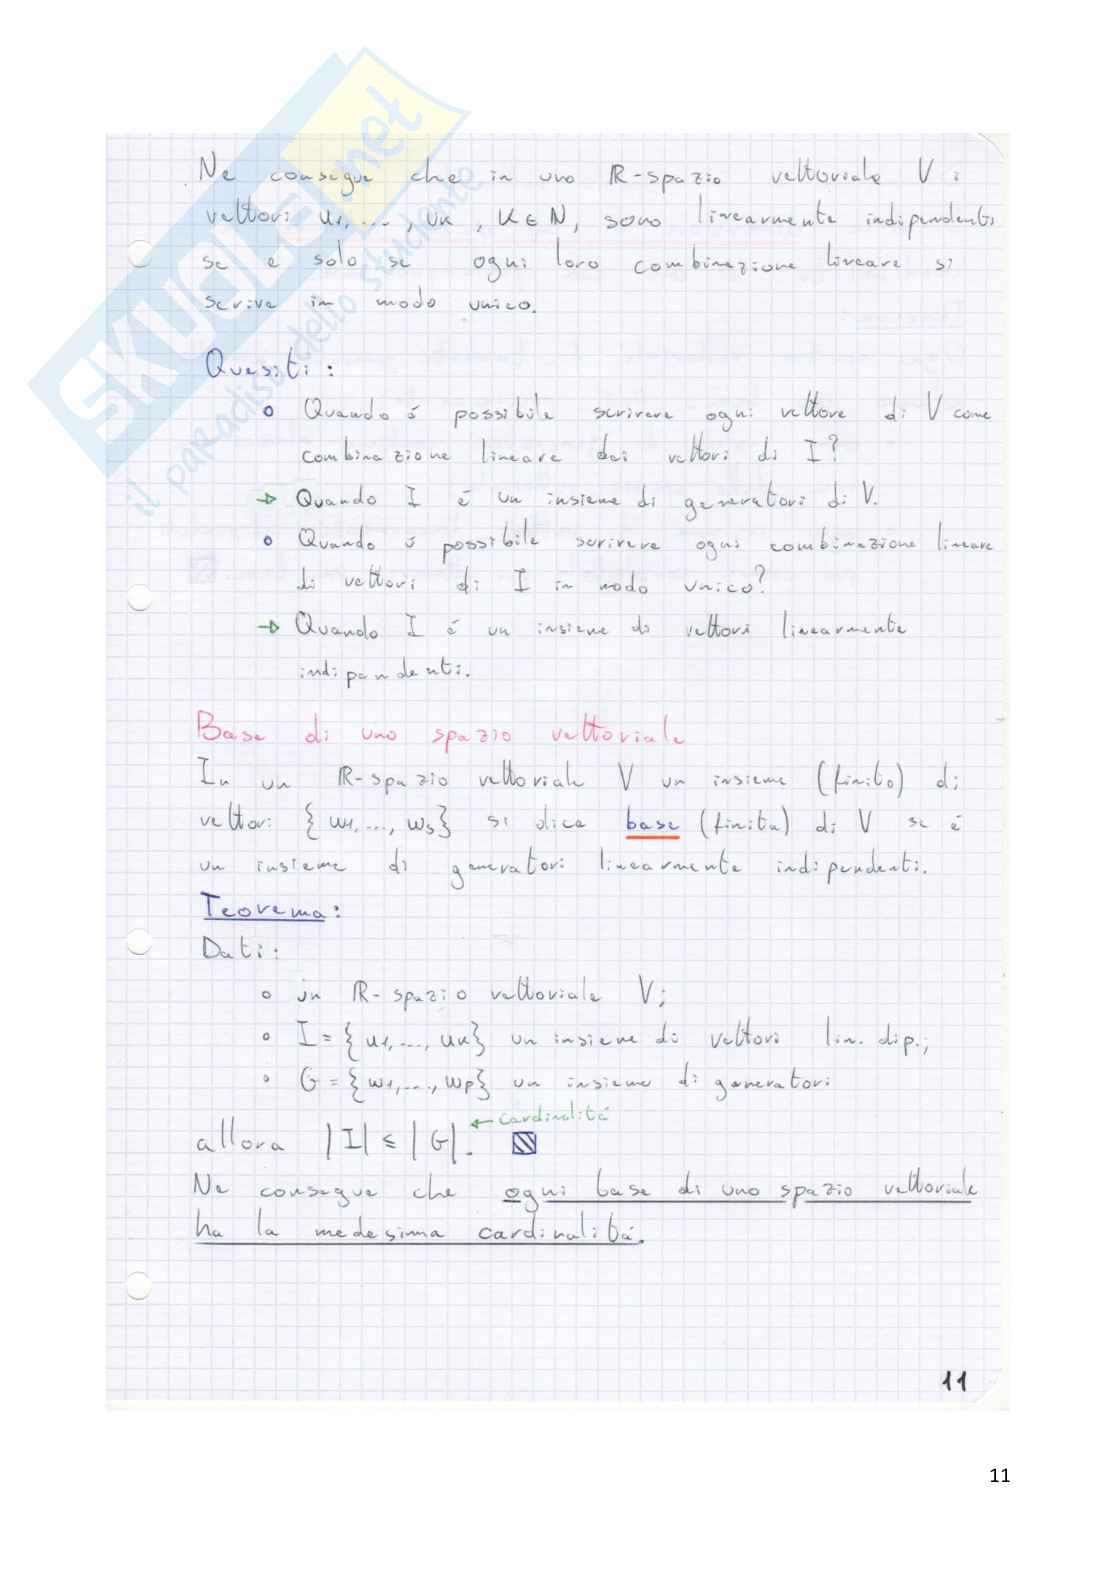 Ne consegue che in uno ℝ-spazio vettoriale V i
vettori u1, ..., uk, K ∈ N, sono linearmente indipendenti
se e solo se ogni loro combinazione lineare si
scrive in modo unico.
Quesiti:
• Quando é possibile scrivere ogni vettore di V come
combinazione lineare dei vettori di I?
→ Quando I é un insieme di generatori di V.
• Quando é possibile scrivere ogni combinazione lineare
di vettori di I in modo unico?
→ Quando I é un insieme di vettori linearmente
indipendenti.
Base di uno spazio vettoriale
In un ℝ-spazio vettoriale V un insieme (finito) di
vettori {w1, ..., ws} si dice base (finita) di V se é
un insieme di generatori linearmente indipendenti.
Teorema:
Dati:
• un ℝ-spazio vettoriale V;
• I = {u1, ..., uk} un insieme di vettori lin. dip.;
• G = {w1, ..., wp} un insieme di generatori
← cardinalitá
allora |I| ≤ |G|.
Ne consegue che ogni base di uno spazio vettoriale
ha la medesima cardinalitá.
11
11
SKUOLA.net
il paradiso dello studente